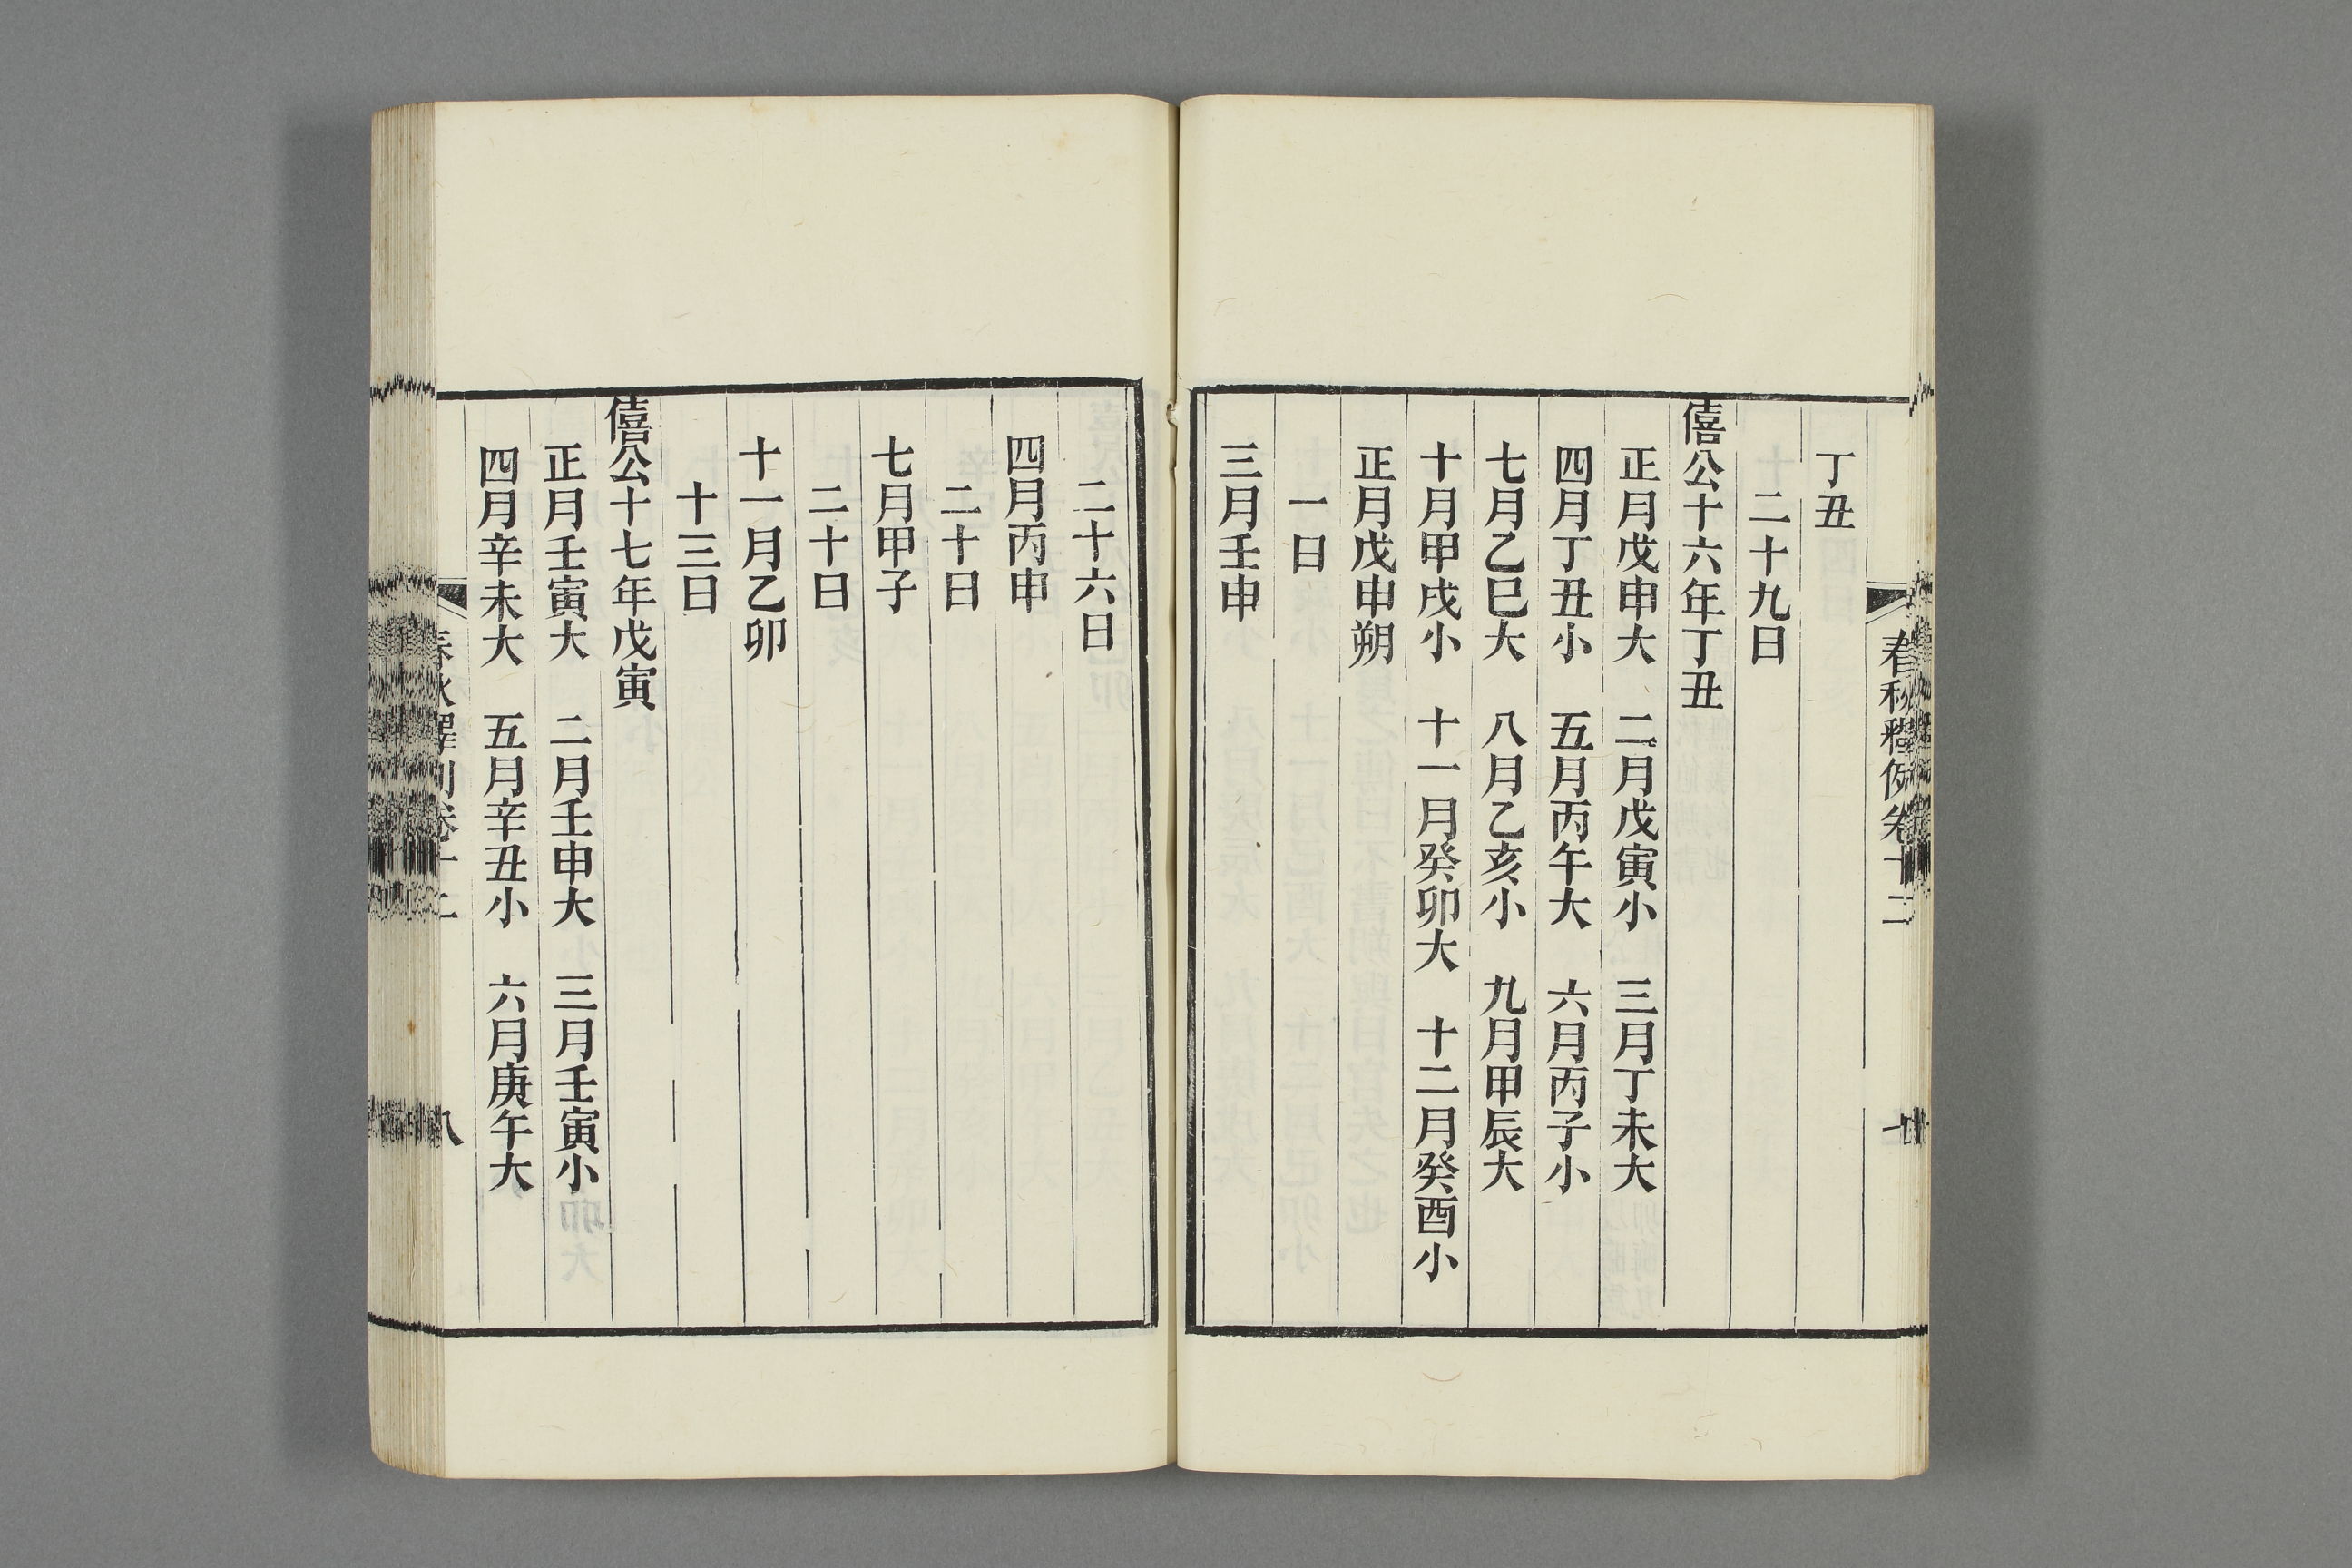 丁丑
二十九日
僖公十六年丁丑
正月戊申大　二月戊寅小　三月丁未大
四月丁丑小　五月丙午大　六月丙子小
七月乙巳大　八月乙亥小　九月甲辰大
十月甲戌小　十一月癸卯大　十二月癸酉小
正月戊申朔
一日
三月壬申
二十六日
四月丙申
二十日
七月甲子
二十日
十一月乙卯
十三日
僖公十七年戊寅
正月壬寅大　二月壬申大　三月壬寅小
四月辛未大　五月辛丑小　六月庚午大
春秋釋例卷十二
八